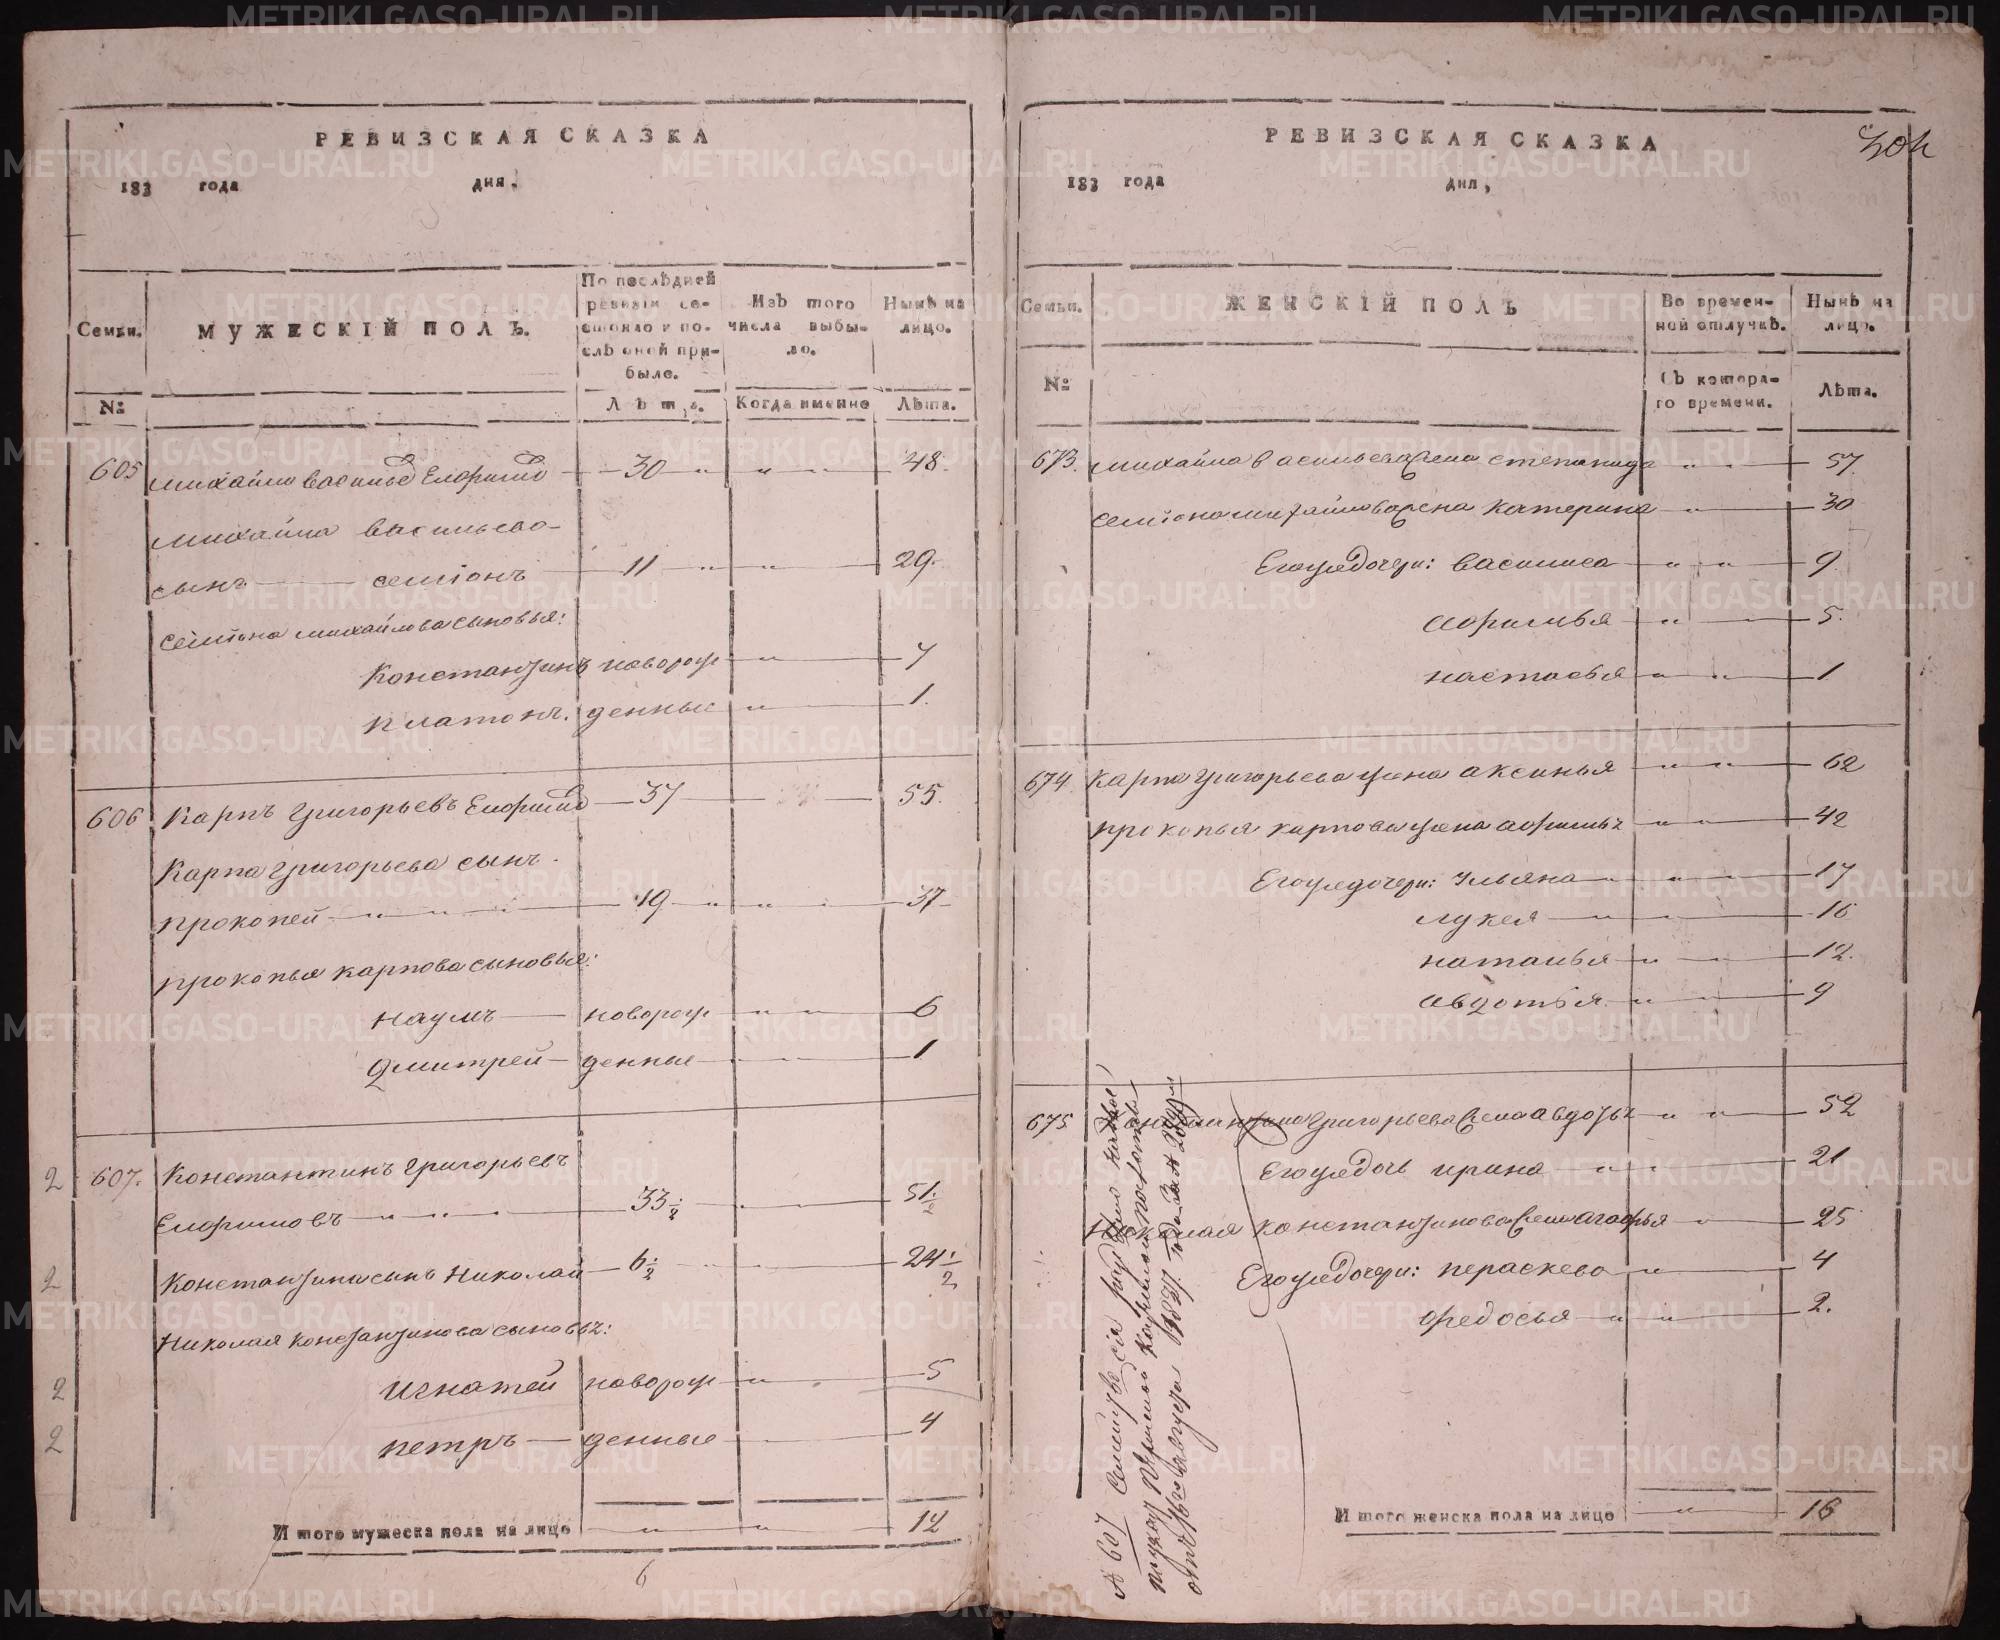 РЕВИЗСКАЯ СКАЗКА
183 года дня,
Семьи. МУЖЕСКІЙ ПОЛЪ. По послѣдней ревизіи состояло и послѣ оной прибыло. Изъ того числа выбыло. Нынѣ на лицо.
№ Лѣта. Когда именно Лѣта.
605 Михайло Васильевъ Елфимовъ 30 " " 48.
Михайла Васильева
сынъ Семіонъ 11 " " 29.
Семіона Михайлова сыновья:
Константинъ новорож " 7
Платонъ. денные " 1.
606 Карпъ Григорьевъ Елфимовъ 37 55.
Карпа Григорьева сынъ
Прокопей " " " 19 " " 37
Прокопья Карпова сыновья:
Наумъ новорож " " 6
Дмитрей денные 1
2 607. Константинъ Григорьевъ
Елфимовъ " " " 33 1/2 51 1/2
2 Константина сынъ Николай 6 1/2 24 1/2
Николая Константинова сыновья:
2 Игнатей новорож " 5
2 Петръ денные 4
Итого мужеска пола на лицо " " 12
6
РЕВИЗСКАЯ СКАЗКА
183 года дня,
Семьи. ЖЕНСКІЙ ПОЛЪ Во временной отлучкѣ. Нынѣ на лицо.
№ Съ котораго времени. Лѣта.
673. Михайла Васильева жена Степанида " " 57
Семіона Михайлова жена Катерина " 30
Его же дочери: Василиса " " 9.
Афимья " 5.
Настасья " " 1
674 Карпа Григорьева жена Аксинья " " 62
Прокопья Карпова жена Афимья " " 42
Его же дочери: Ульяна " " 17
Лукея " " 16
Наталья " " 12.
Авдотья " " 9
675 Константина Григорьева жена Авдотья " " 52
Его же дочь Ирина " " 21
Николая Константинова жена Агафья " 25
Его же дочери: Пераскева " 4
Федосья " " 2.
Итого женска пола на лицо " 16
№ 607 Семейство сіе
Пермской
августа 1827. года за №
METRIKI.GASO-URAL.RU